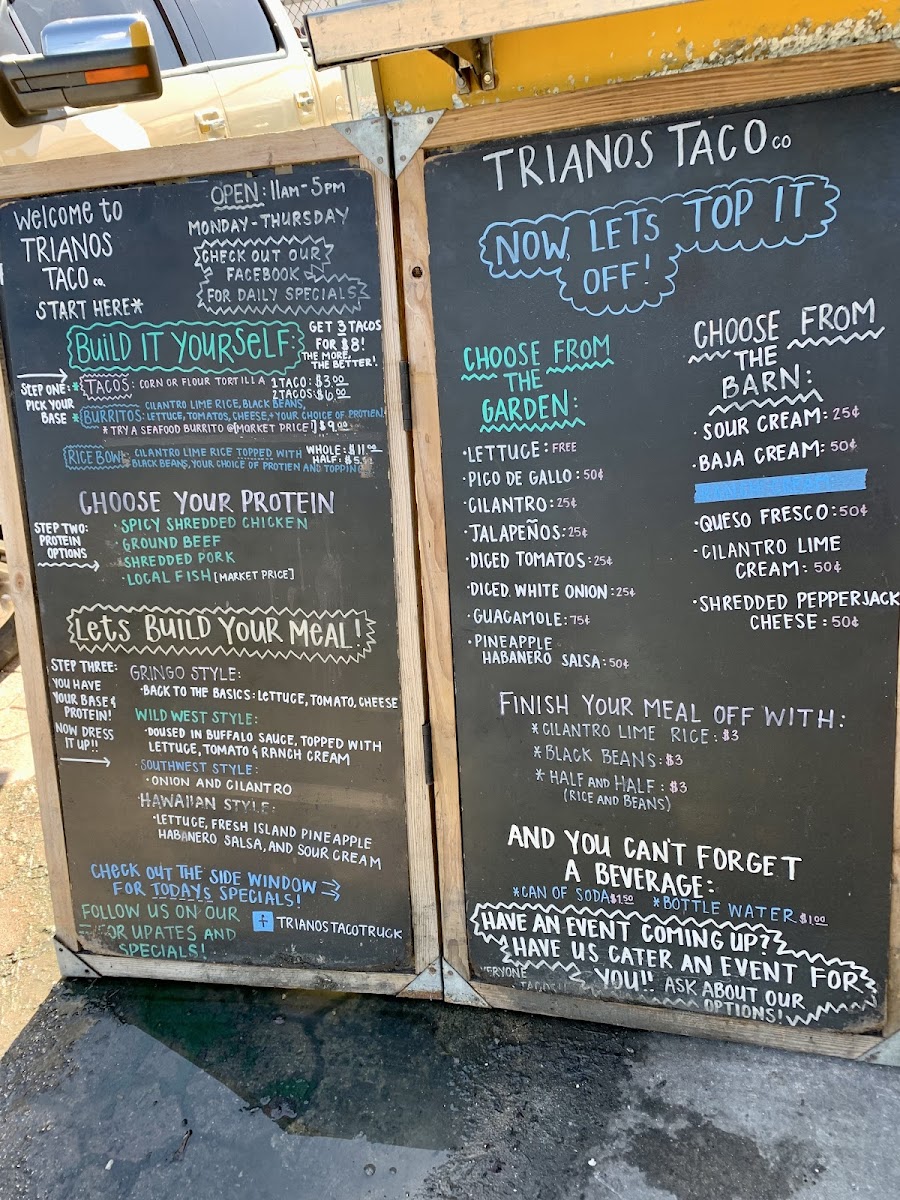 Welcome to
TRIANOS
TACO co.
START HERE*
OPEN: 11AM-5PM
MONDAY-THURSDAY
CHECK OUT OUR
FACEBOOK
FOR DAILY SPECIALS
BUILD IT YOURSELF:
GET 3 TACOS
FOR $8!
THE MORE,
THE BETTER!
STEP ONE:
PICK YOUR
BASE
* TACOS: CORN OR FLOUR TORTILLA
1 TACO: $3.00
2 TACOS: $6.00
* BURRITOS: CILANTRO LIME RICE, BLACK BEANS,
LETTUCE, TOMATOS, CHEESE, + YOUR CHOICE OF PROTIEN
* TRY A SEAFOOD BURRITO @ [MARKET PRICE!] $9.00
RICE BOWL: CILANTRO LIME RICE TOPPED WITH
BLACK BEANS, YOUR CHOICE OF PROTIEN AND TOPPING
WHOLE: $11.00
HALF:
CHOOSE YOUR PROTEIN
STEP TWO:
PROTEIN
OPTIONS
· SPICY SHREDDED CHICKEN
· GROUND BEEF
· SHREDDED PORK
· LOCAL FISH [MARKET PRICE]
LETS BUILD YOUR MEAL!
STEP THREE:
YOU HAVE
YOUR BASE &
PROTEIN!
NOW DRESS
IT UP!!
GRINGO STYLE:
· BACK TO THE BASICS: LETTUCE, TOMATO, CHEESE
WILD WEST STYLE:
· DOUSED IN BUFFALO SAUCE, TOPPED WITH
LETTUCE, TOMATO & RANCH CREAM
SOUTHWEST STYLE:
· ONION AND CILANTRO
HAWAIIAN STYLE:
· LETTUCE, FRESH ISLAND PINEAPPLE
HABANERO SALSA, AND SOUR CREAM
CHECK OUT THE SIDE WINDOW
FOR TODAYS SPECIALS!
FOLLOW US ON OUR
FOR UPATES AND
SPECIALS!
f TRIANOSTACOTRUCK
TRIANOS TACO CO
NOW, LETS TOP IT
OFF!
CHOOSE FROM
THE
GARDEN:
· LETTUCE: FREE
· PICO DE GALLO: 50¢
· CILANTRO: 25¢
· JALAPEÑOS: 25¢
· DICED TOMATOS: 25¢
· DICED WHITE ONION: 25¢
· GUACAMOLE: 75¢
· PINEAPPLE
HABANERO SALSA: 50¢
CHOOSE FROM
THE
BARN:
· SOUR CREAM: 25¢
· BAJA CREAM: 50¢
· QUESO FRESCO: 50¢
· CILANTRO LIME
CREAM: 50¢
· SHREDDED PEPPERJACK
CHEESE: 50¢
FINISH YOUR MEAL OFF WITH:
* CILANTRO LIME RICE: $3
* BLACK BEANS: $3
* HALF AND HALF: $3
(RICE AND BEANS)
AND YOU CAN'T FORGET
A BEVERAGE:
* CAN OF SODA $1.50 * BOTTLE WATER $1.00
HAVE AN EVENT COMING UP??
HAVE US CATER AN EVENT FOR
YOU!! ASK ABOUT OUR
OPTIONS!